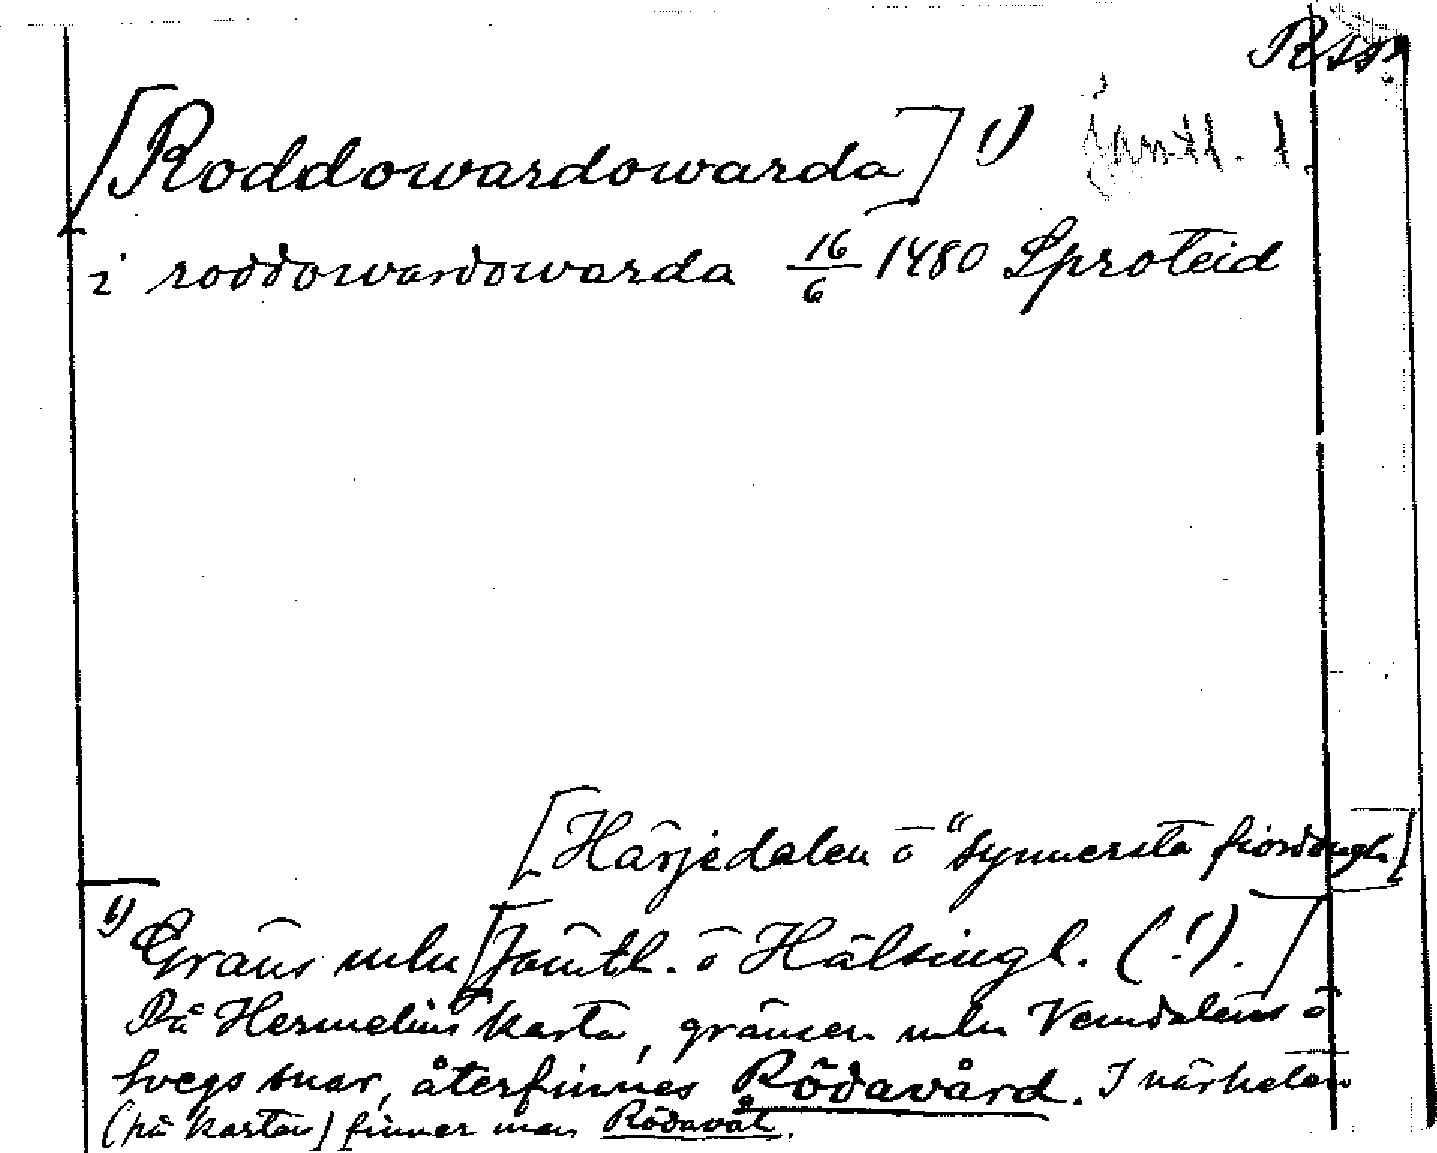 Rssn
[Roddowardowarda] 1) Jämtl. 1.
i roddowardowarda 16/6 1480 Sproteid
[Härjedalen o "synnersta fiordungh]
1) Gräns mln [Jämtl. o Hälsingl. (!).]
På Hermelins karta, gränsen mln Vemdalens o
Svegs snar, återfinnes Rödavård. I närheten
(på kartan) finner man Rödavål.